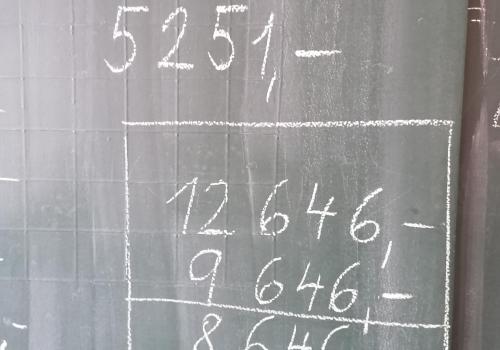 5251,-
12 646,-
9 646,-
8 646